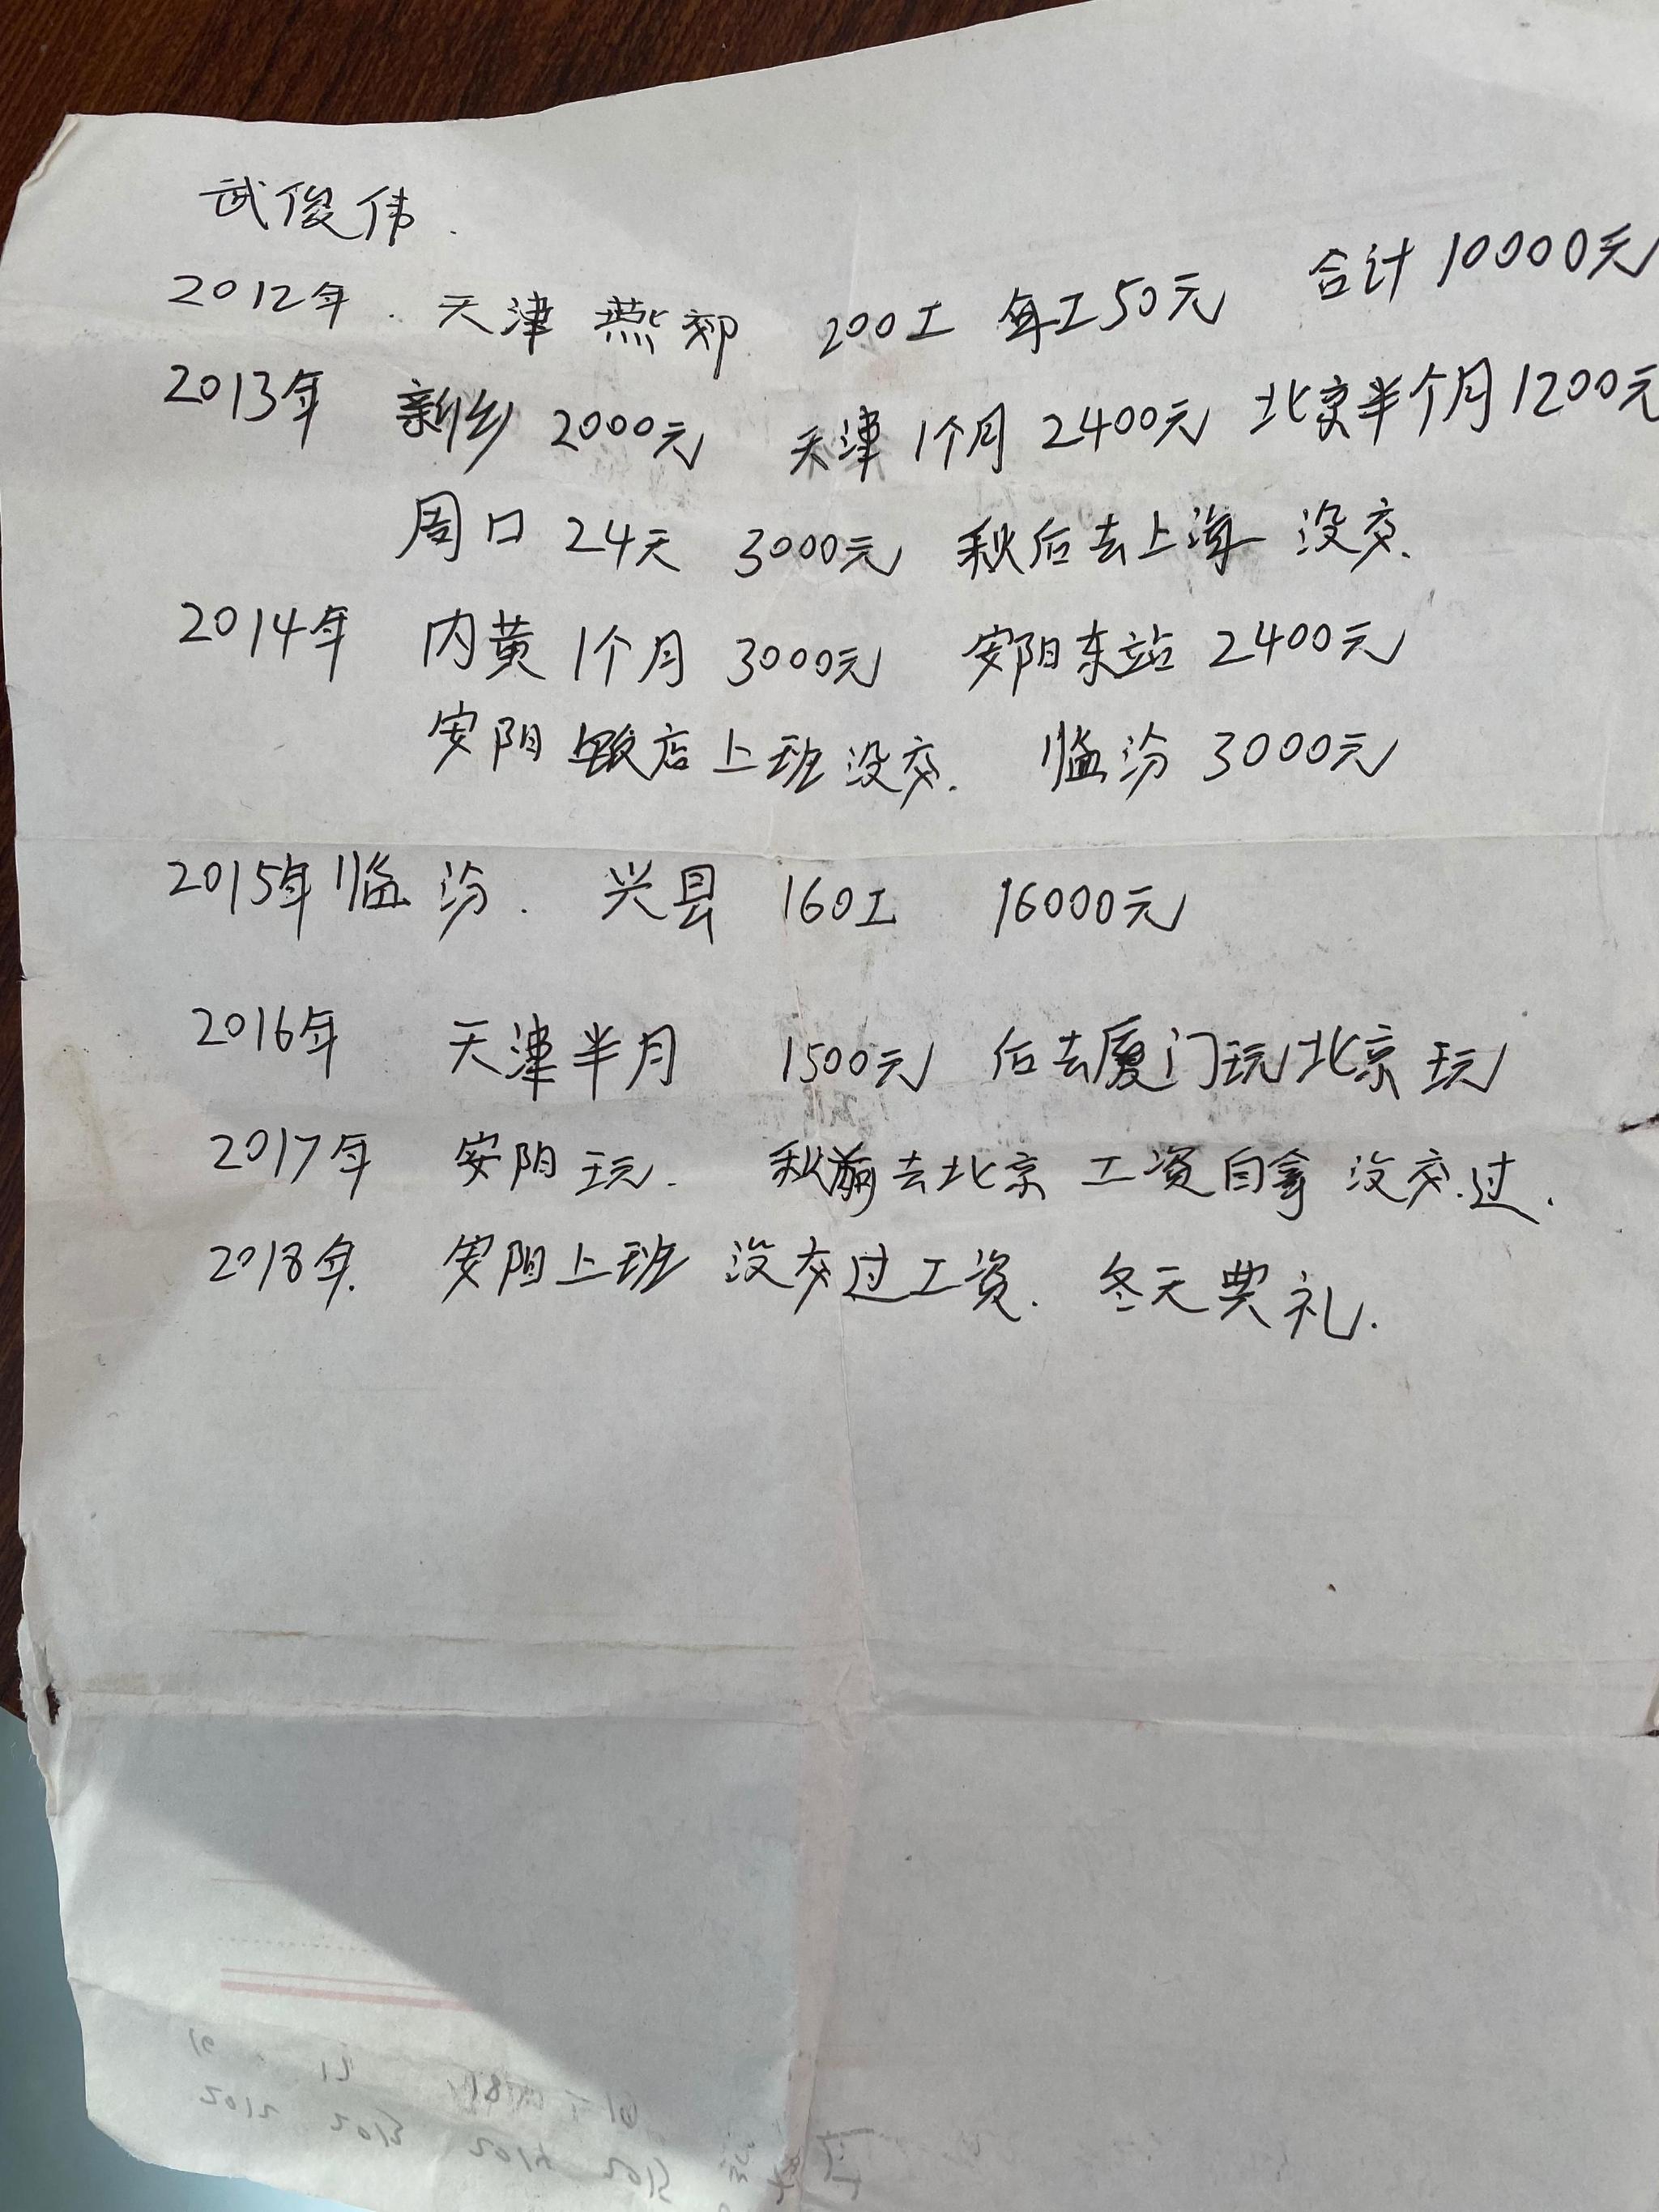 武俊伟.
2012年. 天津 燕郊 200工 每工50元 合计10000元
2013年 新乡 2000元 天津1个月 2400元 北京半个月1200元
周口 24天 3000元 秋后去上海 没交.
2014年 内黄 1个月 3000元 安阳东站 2400元
安阳 店上班没交. 临汾 3000元
2015年临汾. 兴县 160工 16000元
2016年 天津半月 1500元 后去厦门玩北京玩
2017年 安阳玩. 秋前去北京 工资自拿 没交过.
2018年. 安阳上班 没交过工资. 冬天典礼.